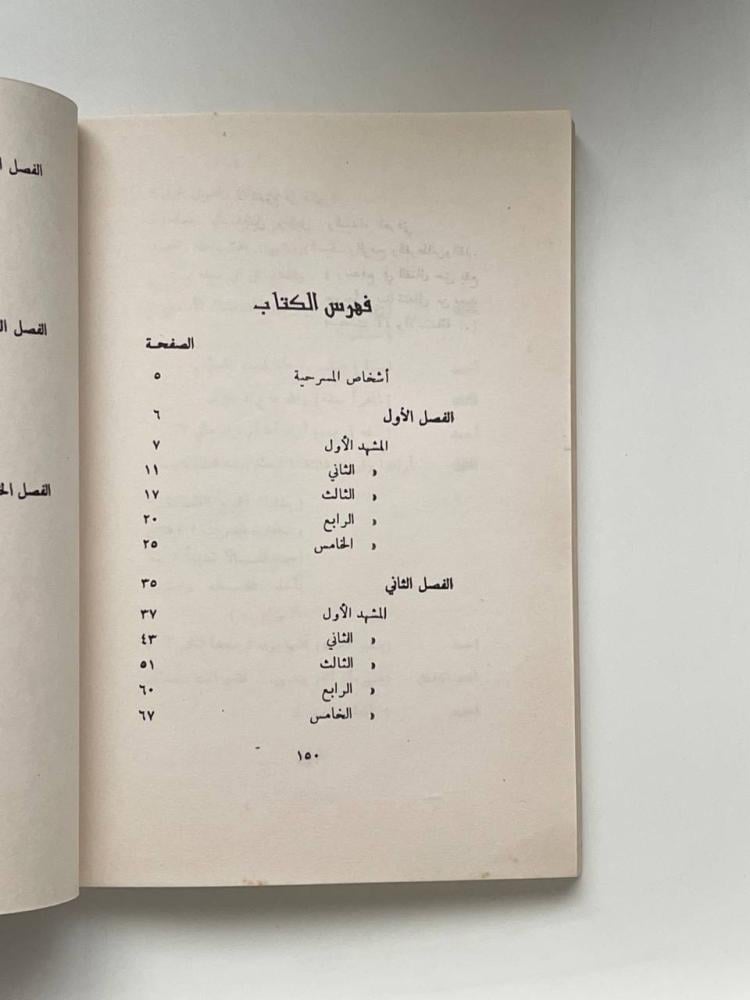 فهرس الكتاب
الصفحة
أشخاص المسرحية ٥
الفصل الأول ٦
المشهد الأول ٧
« الثاني ١١
« الثالث ١٧
« الرابع ٢٠
« الخامس ٢٥
الفصل الثاني ٣٥
المشهد الأول ٣٧
« الثاني ٤٣
« الثالث ٥١
« الرابع ٦٠
« الخامس ٦٧
١٥٠
الفصل
الفصل
الفصل